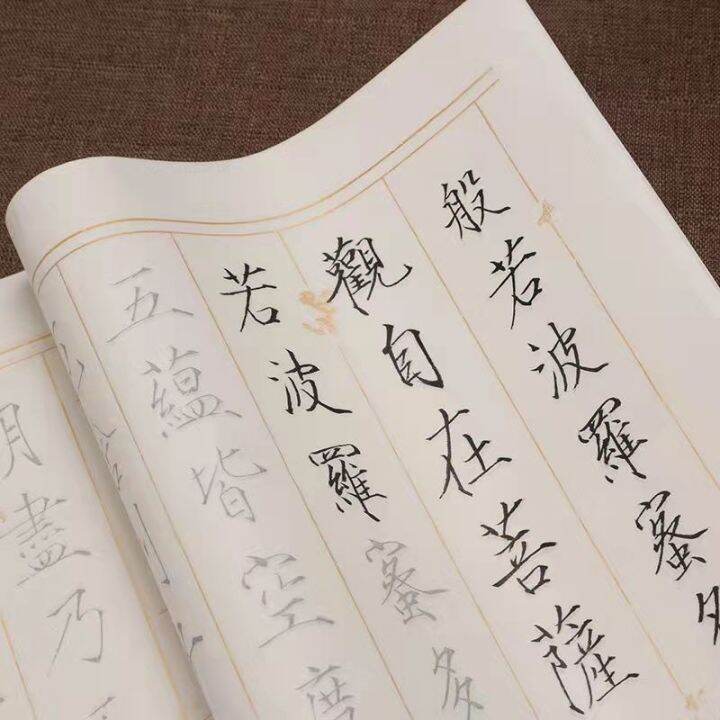 般若波羅蜜多
觀自在菩薩
若波羅蜜多
五蘊皆空度
明盡乃